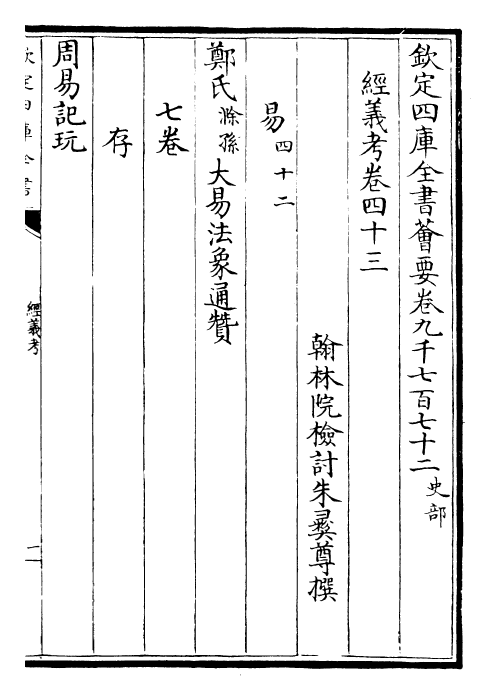 欽定四庫全書薈要卷九千七百七十二史部
經義考卷四十三
翰林院檢討朱彝尊撰
易四十二
鄭氏滁孫大易法象通贊
七卷
存
周易記玩
欽定四庫全書
經義考
一